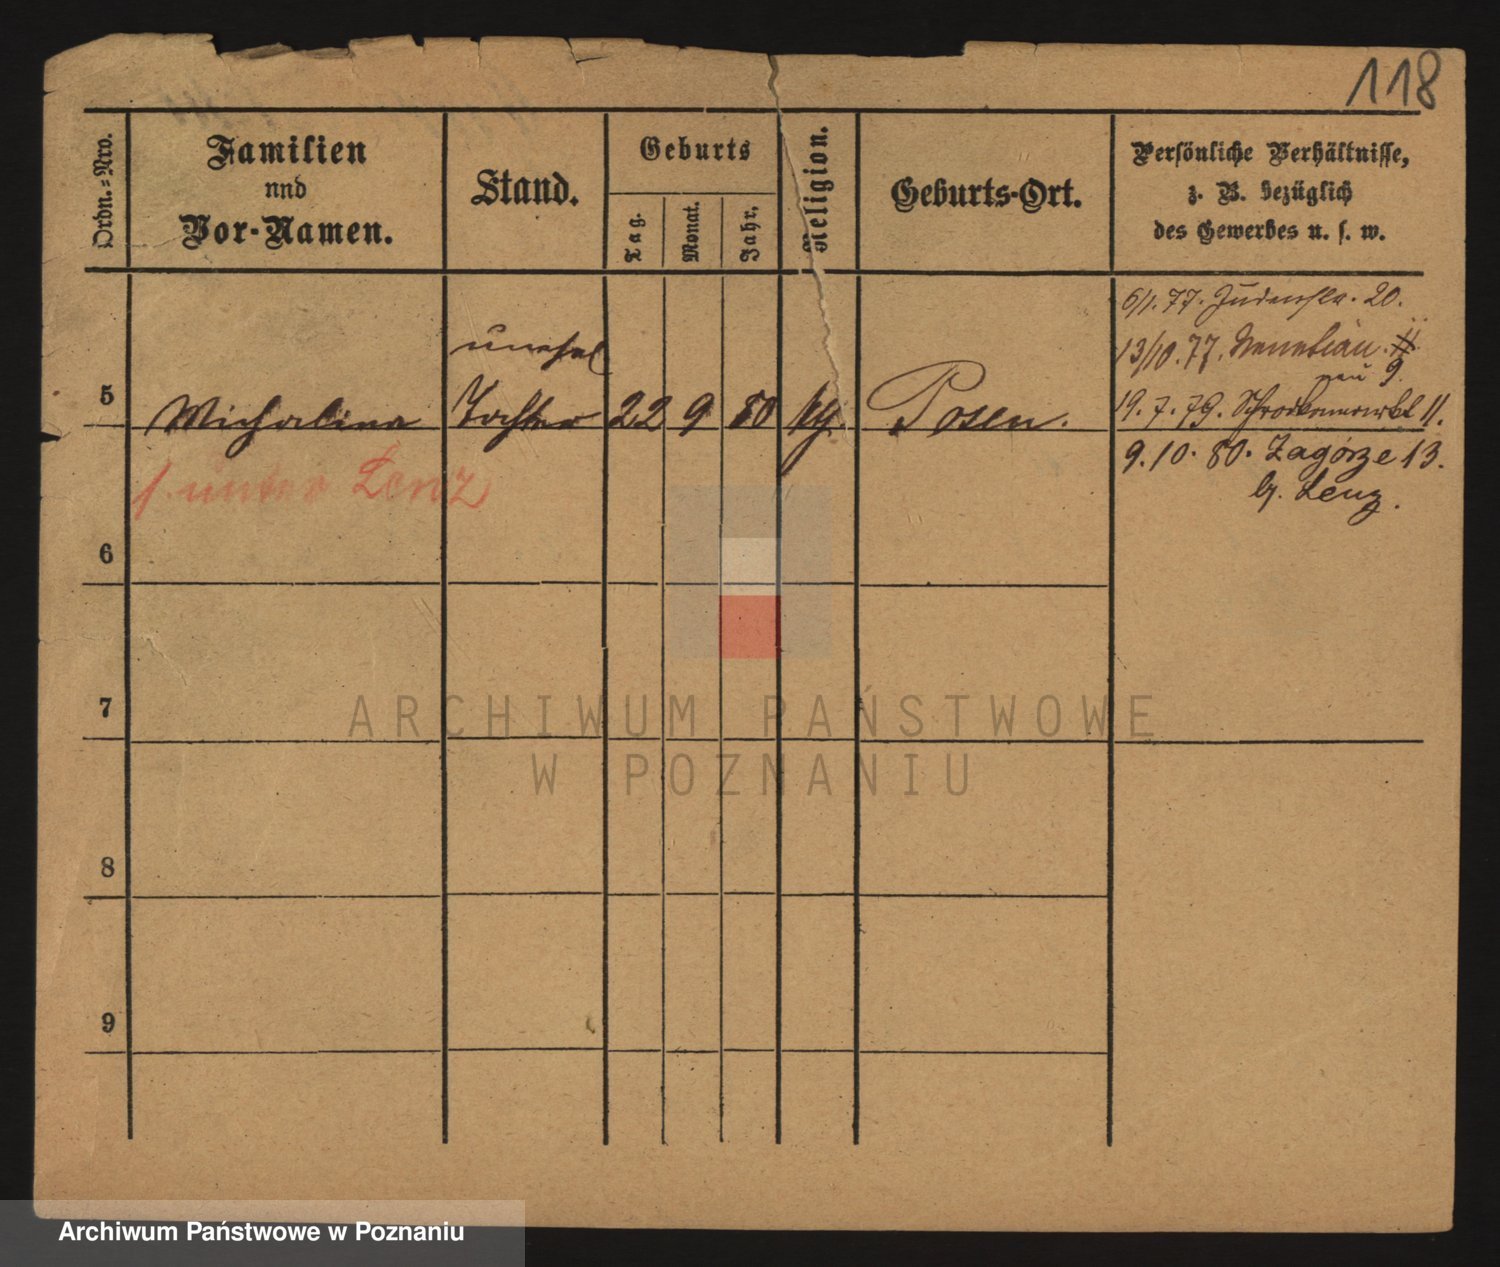 118
Ordn.-Nro.
Familien
nnd
Vor-Namen.
Stand.
Geburts
Tag.
Monat.
Jahr,
Religion.
Geburts-Ort.
Persönliche Verhältnisse,
z. B. bezüglich
des Gewerbes u. s. w.
6/1. 77. Judenstr. 20.
13/10. 77. Venetian. 11
neu 9.
unehel
5 Michalina Tochter 22 9 80 kth. Posen. 19. 7. 79. Schrodkaermarkt 11.
9. 10. 80. Zagorze 13.
b. Lenz.
s. unter Lenz
6
7
8
9
ARCHIWUM PAŃSTWOWE
W POZNANIU
Archiwum Państwowe w Poznaniu